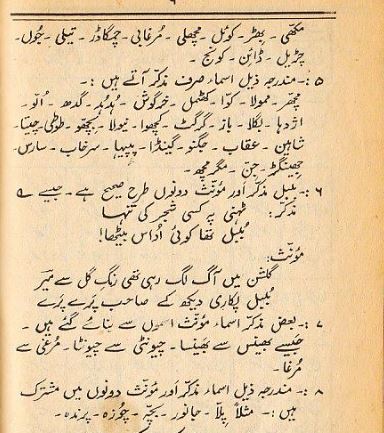 ۹
مکھّی ۔ بِھڑ ۔ کوئل ۔ مچھلی ۔ مُرغابی ۔ چمگادڑ ۔ تیلی ۔ جُوں ۔
چڑیل ۔ ڈائن ۔ کونج ۔
۵ :۔ مندرجہ ذیل اسماء صرف مذکّر آتے ہیں :۔
مچھّر ۔ ممولا ۔ کوّا ۔ کھٹمل ۔ خرگوش ۔ ہُدہُد ۔ گدھ ۔ اُلّو ۔
اژدہا ۔ بگلا ۔ باز ۔ گرگٹ ۔ کچھوا ۔ نیولا ۔ بچھّو ۔ طوطی ۔ چیتا ۔
شاہین ۔ عقاب ۔ جگنو ۔ گینڈا ۔ پپیہا ۔ سرخاب ۔ سارس ۔
جھینگر ۔ جِنّ ۔ مگر مچھ ۔
۶ :۔ بلبل مذکّر اور مُونّث دونوں طرح صحیح ہے ۔ جیسے
مذکّر : ٹہنی پہ کسی شجر کی تنہا
بُلبل تھا کوئی اُداس بیٹھا!
مُونّث :
گلشن میں آگ لگ رہی تھی رنگِ گل سے میرؔ
بُلبل پکاری دیکھ کے صاحب پَرے پَرے
۷ :۔ بعض مذکّر اسماء مُونّث اسموں سے بنائے گئے ہیں ۔
جیسے بھینس سے بھینسا ۔ چیونٹی سے چیونٹا ۔ مُرغی سے
مُرغا ۔
۸ :۔ مندرجہ ذیل اسماء مذکّر اور مُونّث دونوں میں مشترک
ہیں :۔ مثلاً پِلّا ۔ جانور ۔ بچّہ ۔ چُوزہ ۔ پرندہ ۔